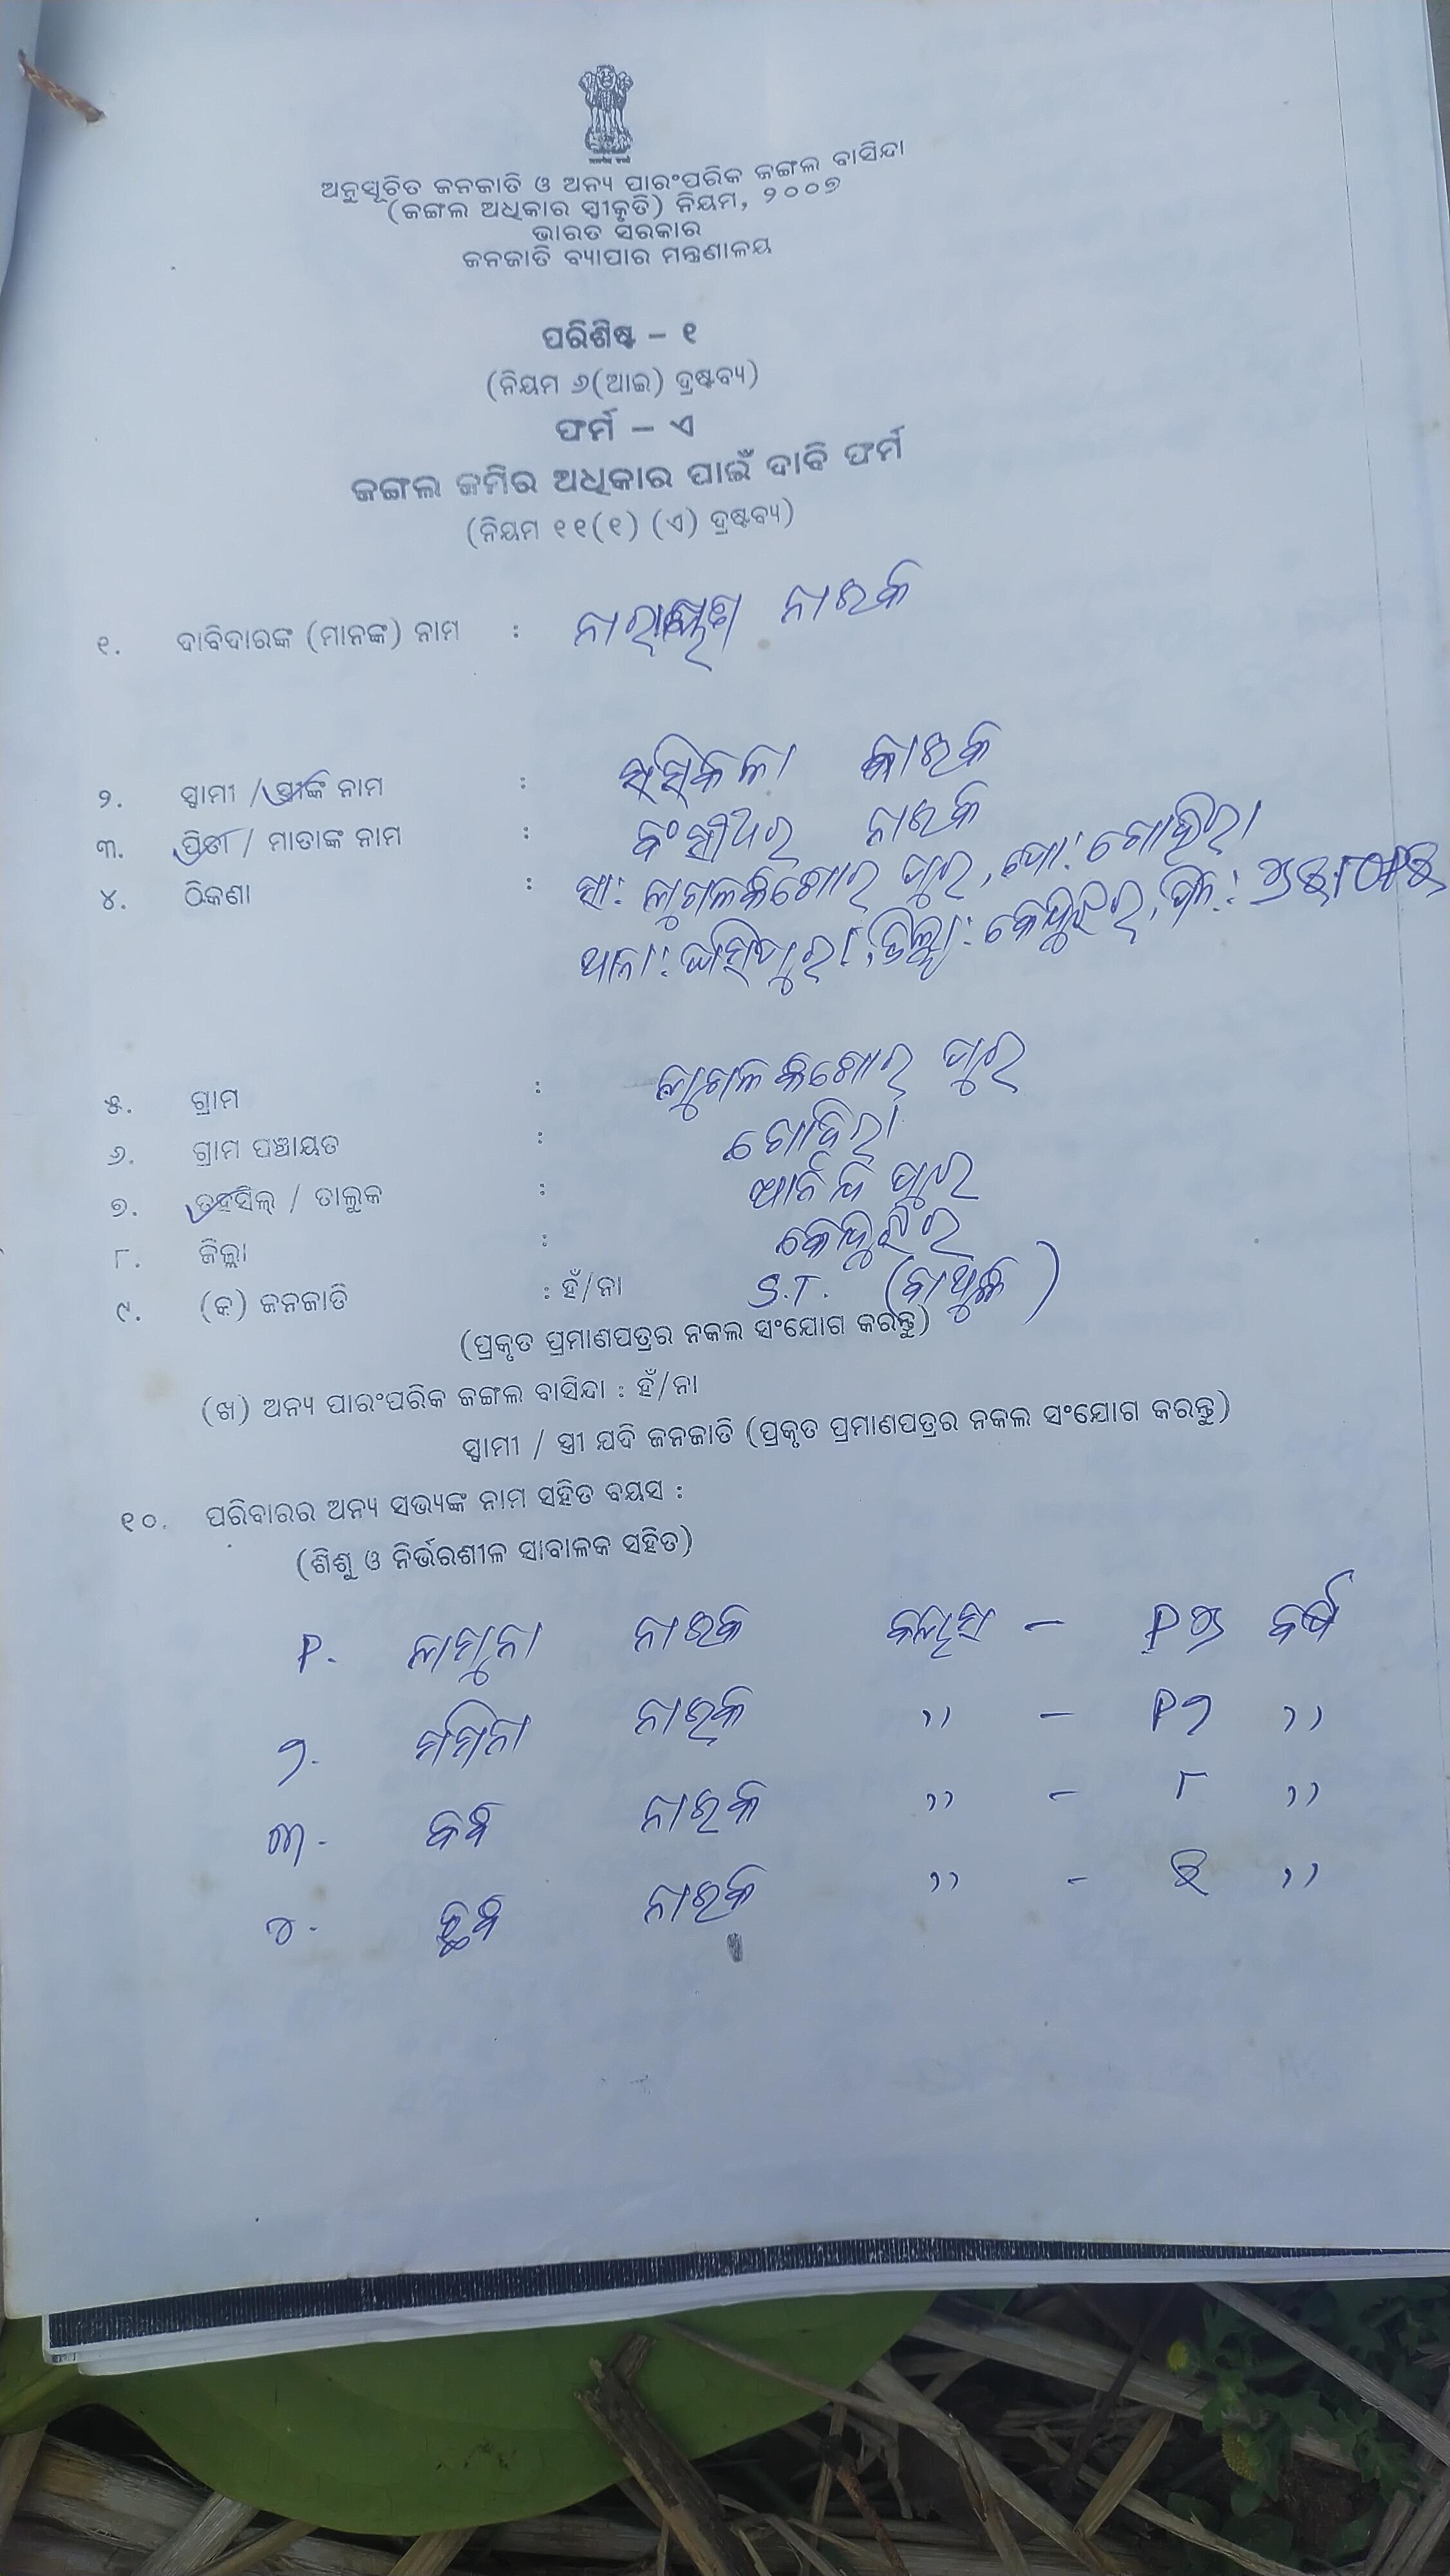 ଅନୁସୂଚିତ ଜନଜାତି ଓ ଅନ୍ୟ ପାରଂପରିକ ଜଙ୍ଗଲ ବାସିନ୍ଦା
(ଜଙ୍ଗଲ ଅଧିକାର ସ୍ୱୀକୃତି) ନିୟମ, ୨୦୦୭
ଭାରତ ସରକାର
ଜନଜାତି ବ୍ୟାପାର ମନ୍ତ୍ରଣାଳୟ
ପରିଶିଷ୍ଟ – ୧
(ନିୟମ ୬(ଆଇ) ଦ୍ରଷ୍ଟବ୍ୟ)
ଫର୍ମ – ଏ
ଜଙ୍ଗଲ ଜମିର ଅଧିକାର ପାଇଁ ଦାବି ଫର୍ମ
(ନିୟମ ୧୧(୧) (ଏ) ଦ୍ରଷ୍ଟବ୍ୟ)
୧. ଦାବିଦାରଙ୍କ (ମାନଙ୍କ) ନାମ : ନାରାୟଣ ନାଇକ
୨. ସ୍ୱାମୀ / ସ୍ତ୍ରୀଙ୍କ ନାମ : ସସିକଳା ନାଇକ
୩. ପିତା / ମାତାଙ୍କ ନାମ : ବଂସୀଧର ନାଇକ
୪. ଠିକଣା : ସା: ଯୁଗଳକିଶୋର ପୁର, ପୋ: ଗୋହିରା
ଥାନା: ଘସିପୁରା, ଜିଲ୍ଲା: କେନ୍ଦୁଝର, ପିନ:
୫. ଗ୍ରାମ : ଯୁଗଳକିଶୋର ପୁର
୬. ଗ୍ରାମ ପଞ୍ଚାୟତ : ଗୋହିରା
୭. ତହସିଲ୍ / ତାଲୁକ : ଆନନ୍ଦ ପୁର
୮. ଜିଲ୍ଲା : କେନ୍ଦୁଝର
୯. (କ) ଜନଜାତି : ହଁ/ନା S.T. (ବାଥୁଡି)
(ପ୍ରକୃତ ପ୍ରମାଣପତ୍ରର ନକଲ ସଂଯୋଗ କରନ୍ତୁ)
(ଖ) ଅନ୍ୟ ପାରଂପରିକ ଜଙ୍ଗଲ ବାସିନ୍ଦା : ହଁ/ନା
ସ୍ୱାମୀ / ସ୍ତ୍ରୀ ଯଦି ଜନଜାତି (ପ୍ରକୃତ ପ୍ରମାଣପତ୍ରର ନକଲ ସଂଯୋଗ କରନ୍ତୁ)
୧୦. ପରିବାରର ଅନ୍ୟ ସଭ୍ୟଙ୍କ ନାମ ସହିତ ବୟସ :
(ଶିଶୁ ଓ ନିର୍ଭରଶୀଳ ସାବାଳକ ସହିତ)
୧. ଯମୁନା ନାଇକ ବୟସ – ୧୬ ବର୍ଷ
୨. ମମିନା ନାଇକ ,, – ୧୨ ,,
୩. ନାଇକ ,, – ୮ ,,
୪. ନାଇକ ,, – ,,